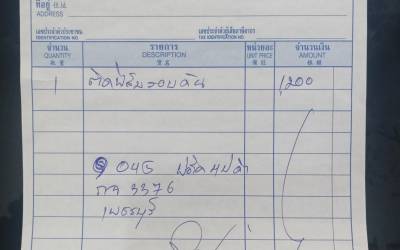 ที่อยู่
ADDRESS
เลขประจำตัวประชาชน เลขประจำตัวผู้เสียภาษีอากร
IDENTIFICATION NO. TAX IDENTIFICATION NO.
จำนวน รายการ หน่วยละ จำนวนเงิน
QUANTITY DESCRIPTION UNIT PRICE AMOUNT
1 ติดฟิล์มรอบคัน 1,200
กจ 3376
เพชรบุรี